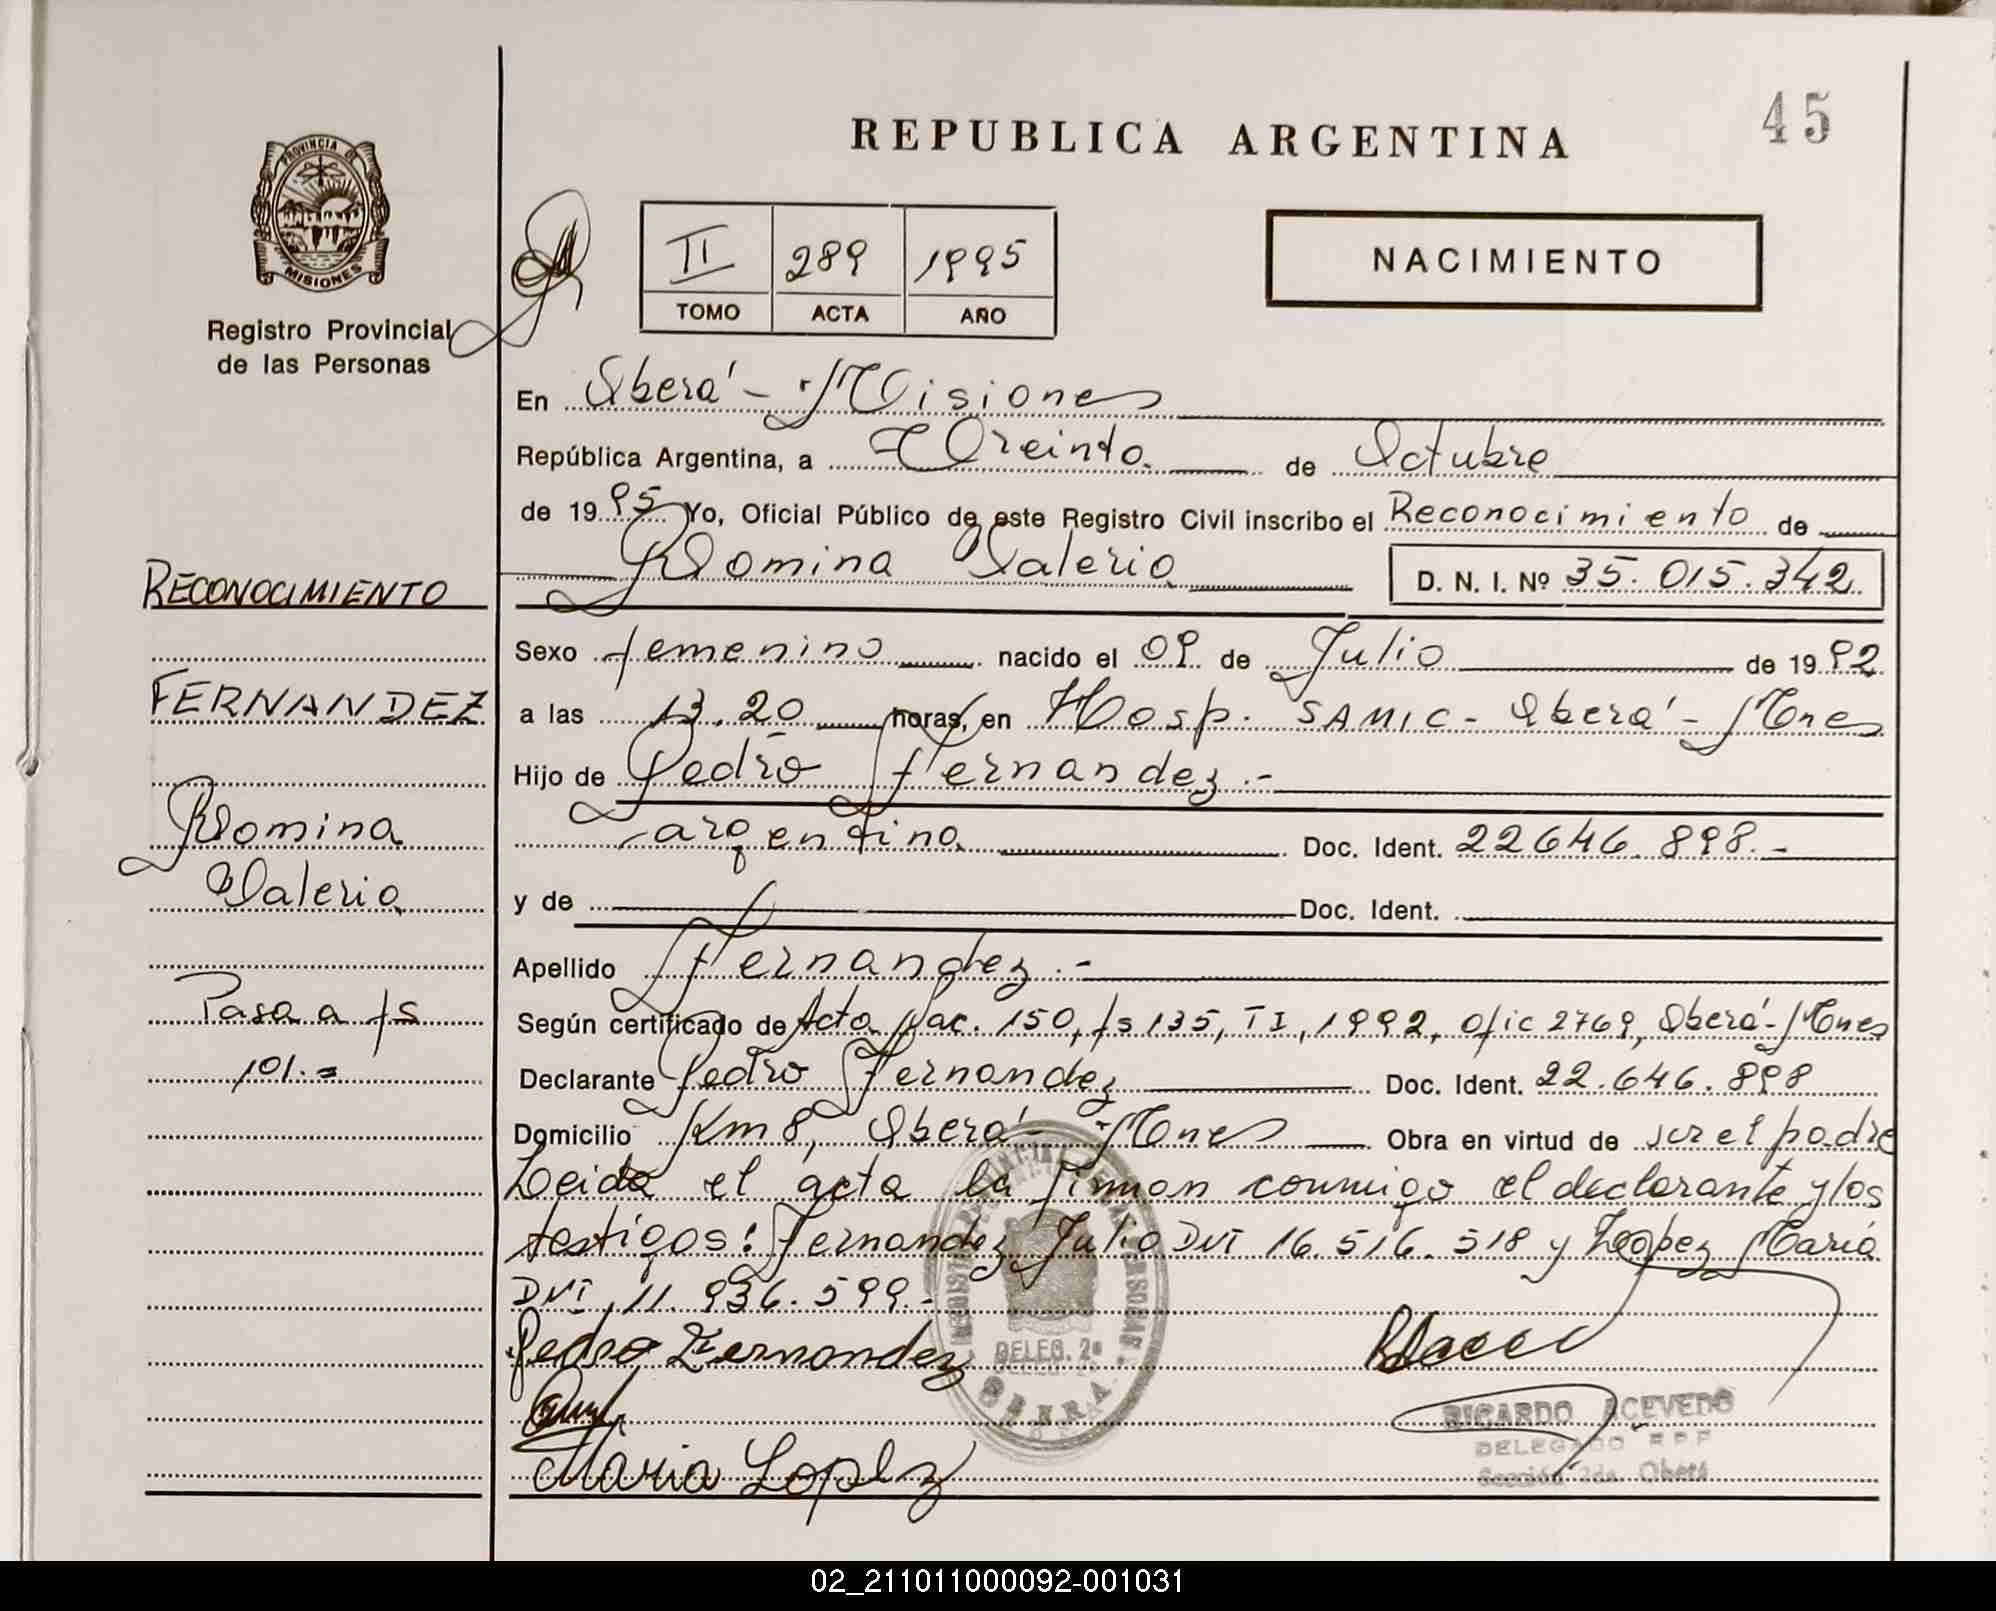 45
REPUBLICA ARGENTINA
PROVINCIA DE
MISIONES
Registro Provincial
de las Personas
II 289 1995
TOMO ACTA AÑO
NACIMIENTO
En Oberá - Misiones
República Argentina, a Treinta de Octubre
de 1995 Yo, Oficial Público de este Registro Civil inscribo el Reconocimiento de
Romina Valeria D. N. I. Nº 35.015.342
Sexo femenino nacido el 09 de Julio de 1992
a las 13.20 horas, en Hosp. SAMIC - Oberá - Mnes
Hijo de Pedro Fernandez.-
argentina Doc. Ident. 22646.898.-
y de Doc. Ident.
Apellido Fernandez.-
Según certificado de Acta Nac. 150, fs 135, TI, 1992, ofic 2769, Oberá - Mnes
Declarante Pedro Fernandez Doc. Ident. 22.646.898
Domicilio Km 8, Oberá - Mnes Obra en virtud de ser el padre
Leida el acta la firman conmigo el declarante y los
testigos: Fernandez Julio DNI 16.516.518 y Lopez Maria
DNI, 11.936.599.-
Pedro Fernandez
Maria Lopez
DELEG. 2ª
OBERA
RICARDO ACEVEDO
DELEGADO R P P
Sección 2da. Oberá
RECONOCIMIENTO
FERNANDEZ
Romina
Valeria
Pasa a fs
101.=
02_211011000092-001031